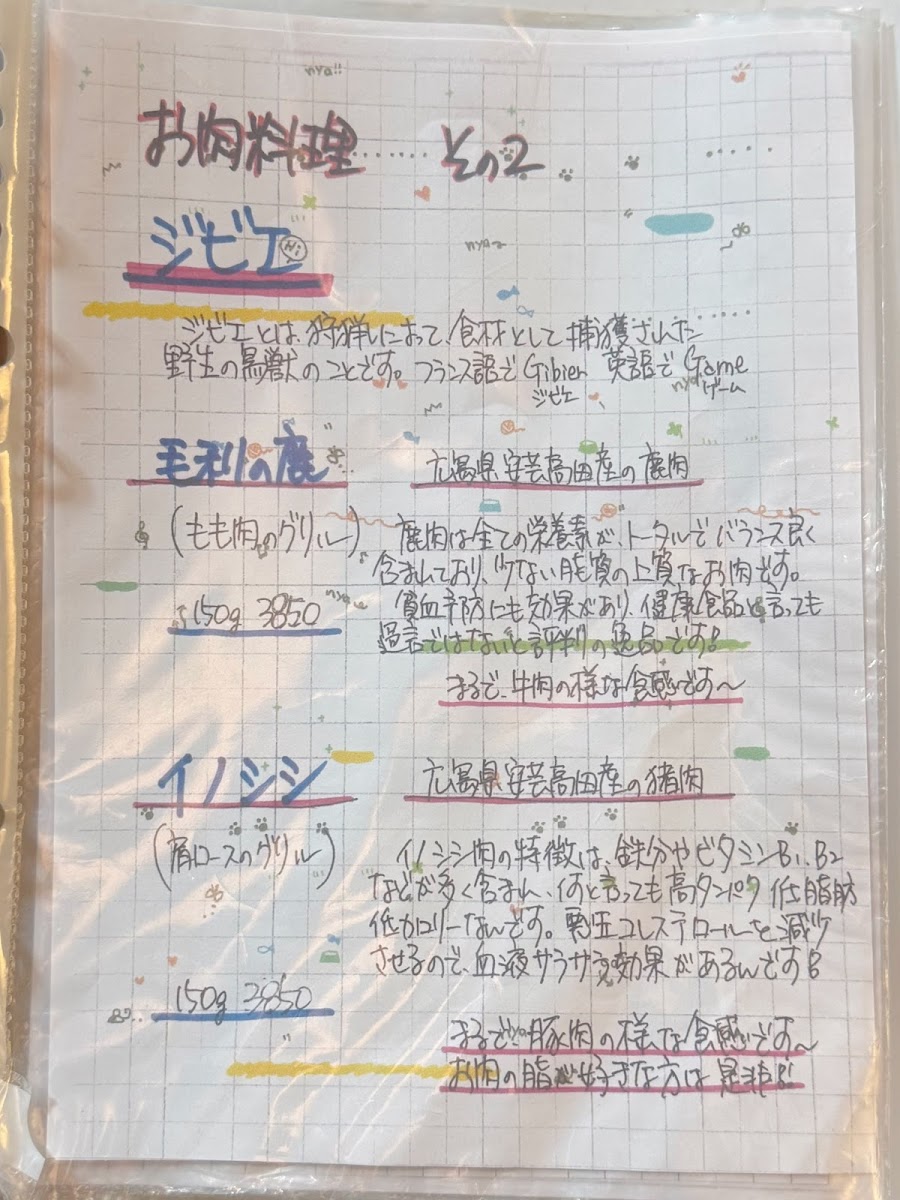 nya!!
お肉料理……その2
ジビエ
nya~
ジビエとは、狩猟によって、食材として捕獲された
野生の鳥獣のことです。フランス語でGibier 英語でGame
ジビエ ゲーム
nya
毛利の鹿
広島県安芸高田産の鹿肉
(もも肉のグリル)
鹿肉は全ての栄養素が、トータルでバランス良く
含まれており、少ない脂質の上質なお肉です。
貧血予防にも効果があり、健康食品と言っても
過言ではないと評判の逸品です!
150g 3850
nya
まるで、牛肉の様な食感です〜
イノシシ
広島県安芸高田産の猪肉
(肩ロースのグリル)
イノシシ肉の特徴は、鉄分やビタミンB1、B2
などが多く含まれ、何と言っても高タンパク低脂肪
低カロリーなんです。悪玉コレステロールを減少
させるので、血液サラサラ効果があるんです!
150g 3850
まるで、豚肉の様な食感です〜
nya
お肉の脂が好きな方は是非!